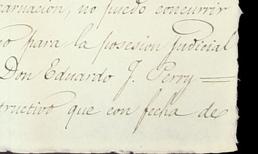 arnación, no puedo concurrir
o para la posesion Judicial
Don Eduardo J. Perry
structivo que con fecha de